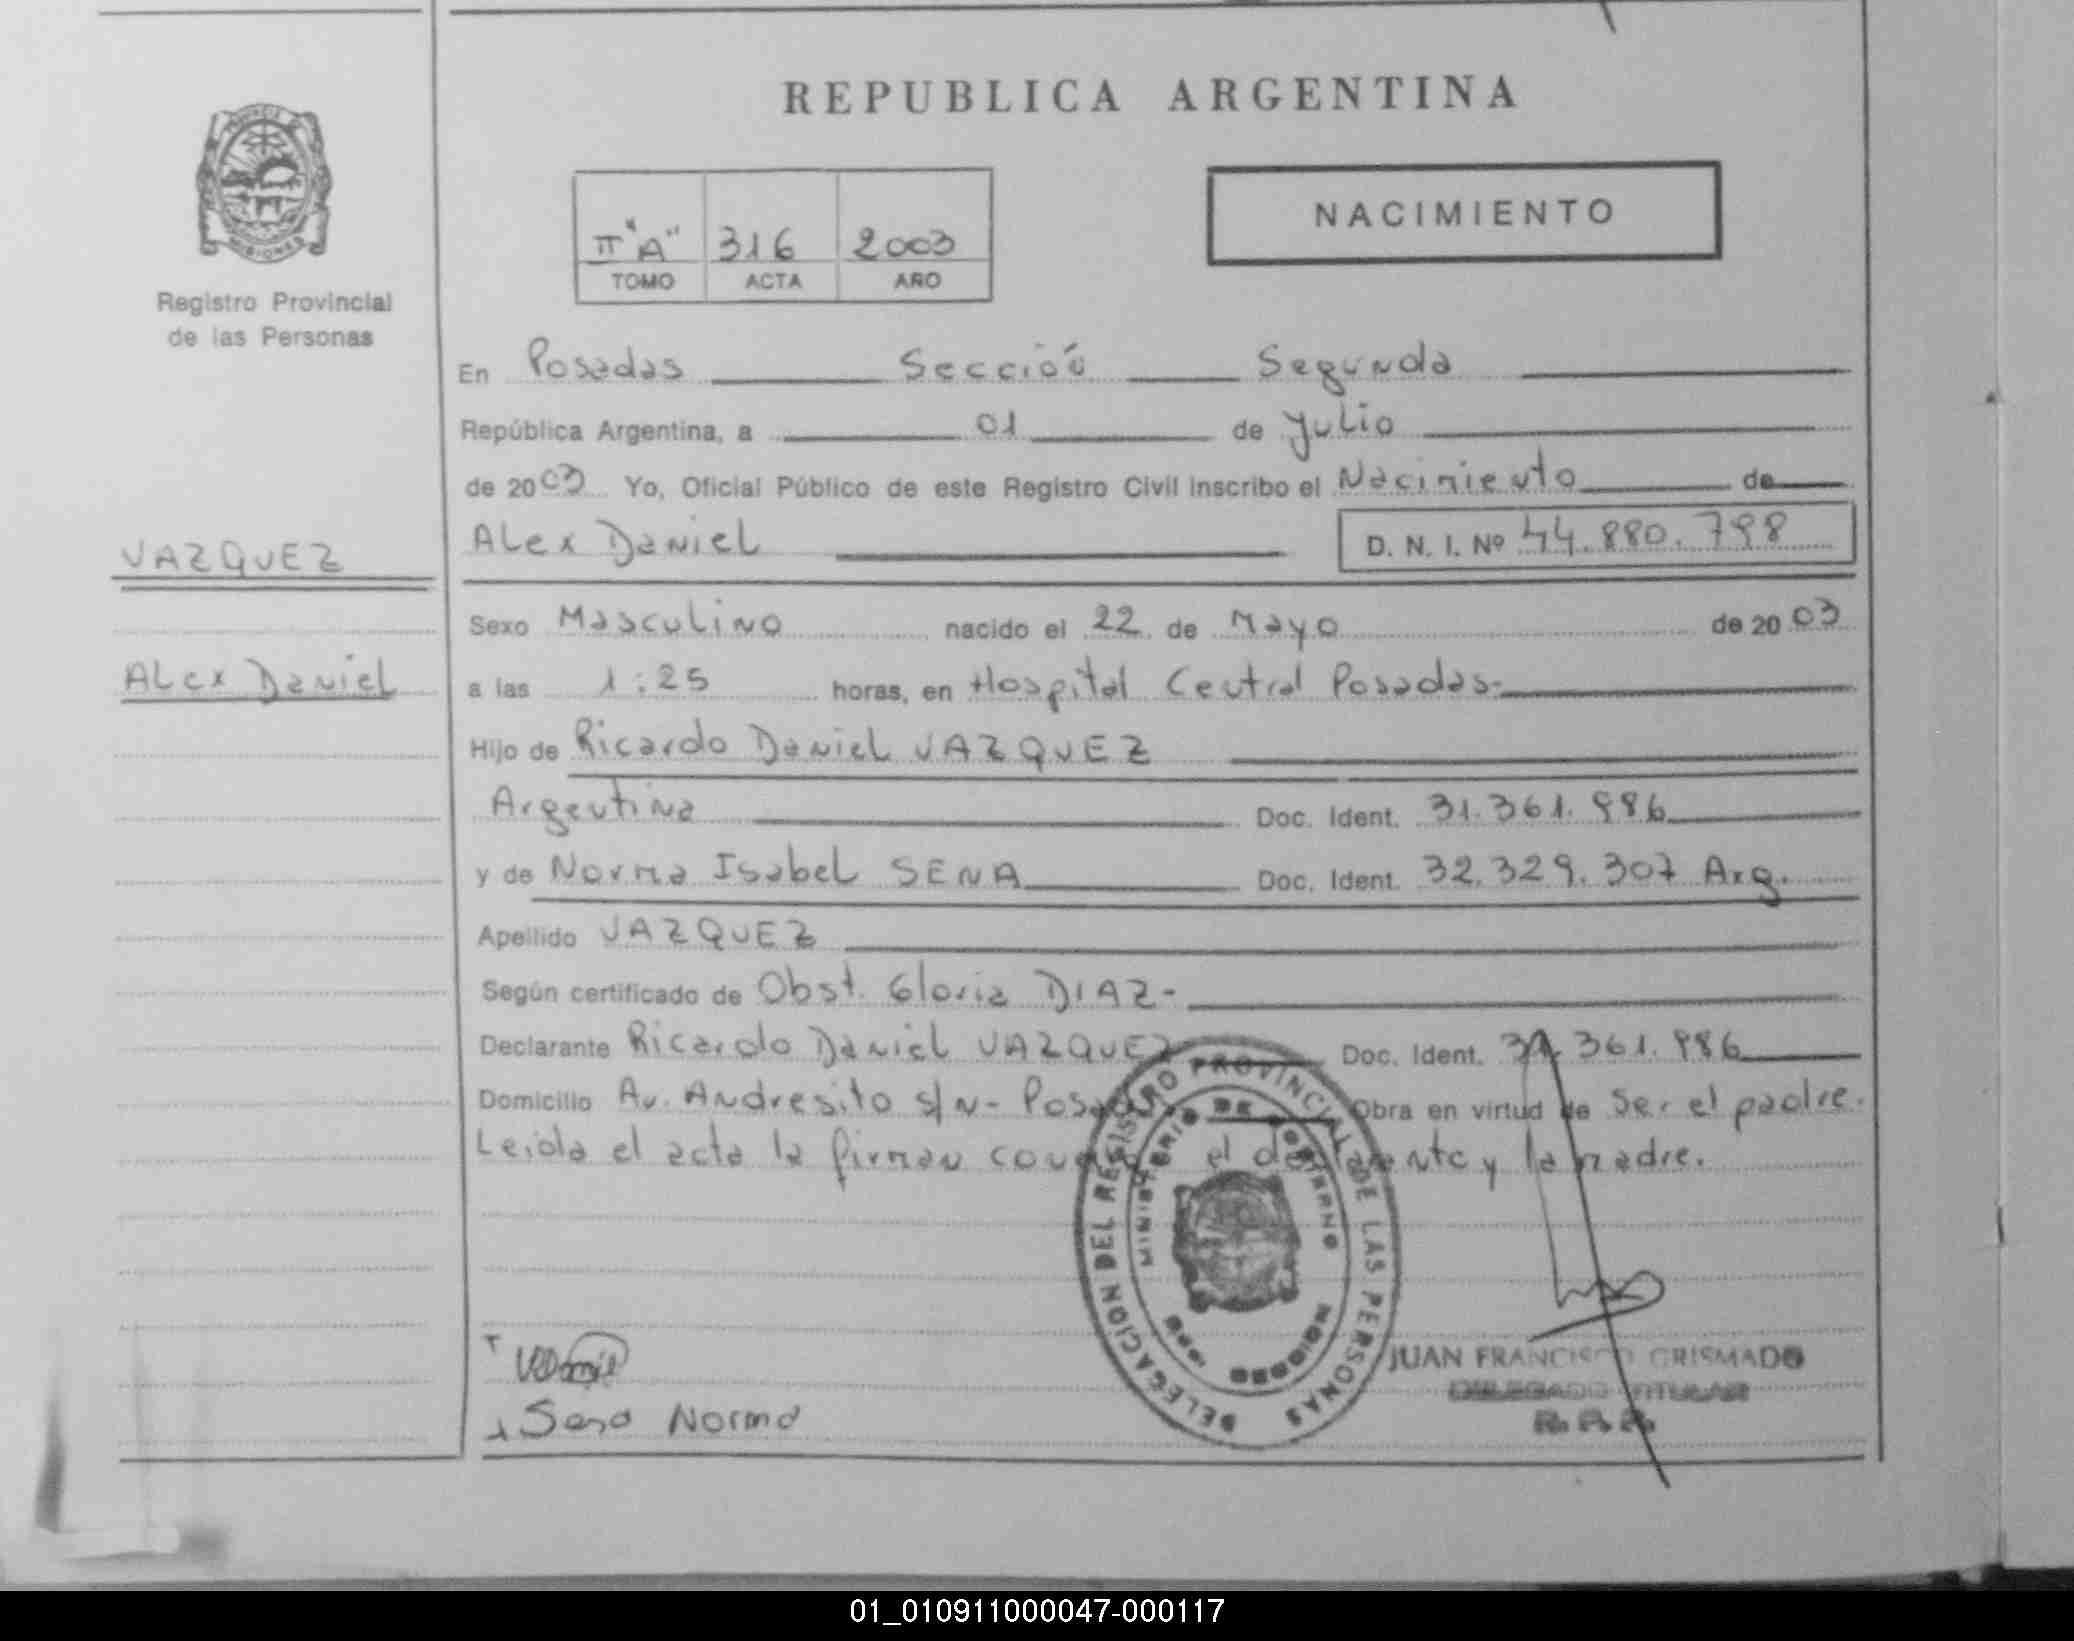 REPUBLICA ARGENTINA
NACIMIENTO
II "A" 316 2003
TOMO ACTA AÑO
MISIONES
Registro Provincial
de las Personas
En Posadas Sección Segunda
República Argentina, a 01 de Julio
de 2003 Yo, Oficial Público de este Registro Civil Inscribo el Nacimiento de
VAZQUEZ
Alex Daniel D. N. I. Nº 44.880.798
Sexo Masculino nacido el 22 de Mayo de 2003
Alex Daniel
a las 1:25 horas, en Hospital Central Posadas.
Hijo de Ricardo Daniel VAZQUEZ
Argentina Doc. Ident. 31.361.986
y de Norma Isabel SENA Doc. Ident. 32.329.307 Arg.
Apellido VAZQUEZ
Según certificado de Obst. Gloria DIAZ-
Declarante Ricardo Daniel VAZQUEZ Doc. Ident. 31.361.986
Domicilio Av. Andresito s/n- Posadas Obra en virtud de Ser el padre.
Leída el acta la firman el declarante y la madre.
DELEGACION DEL REGISTRO PROVINCIAL DE LAS PERSONAS
MINISTERIO DE GOBIERNO
Sena Norma
JUAN FRANCISCO GRISMADO
DELEGADO TITULAR
R. P. P.
01_010911000047-000117